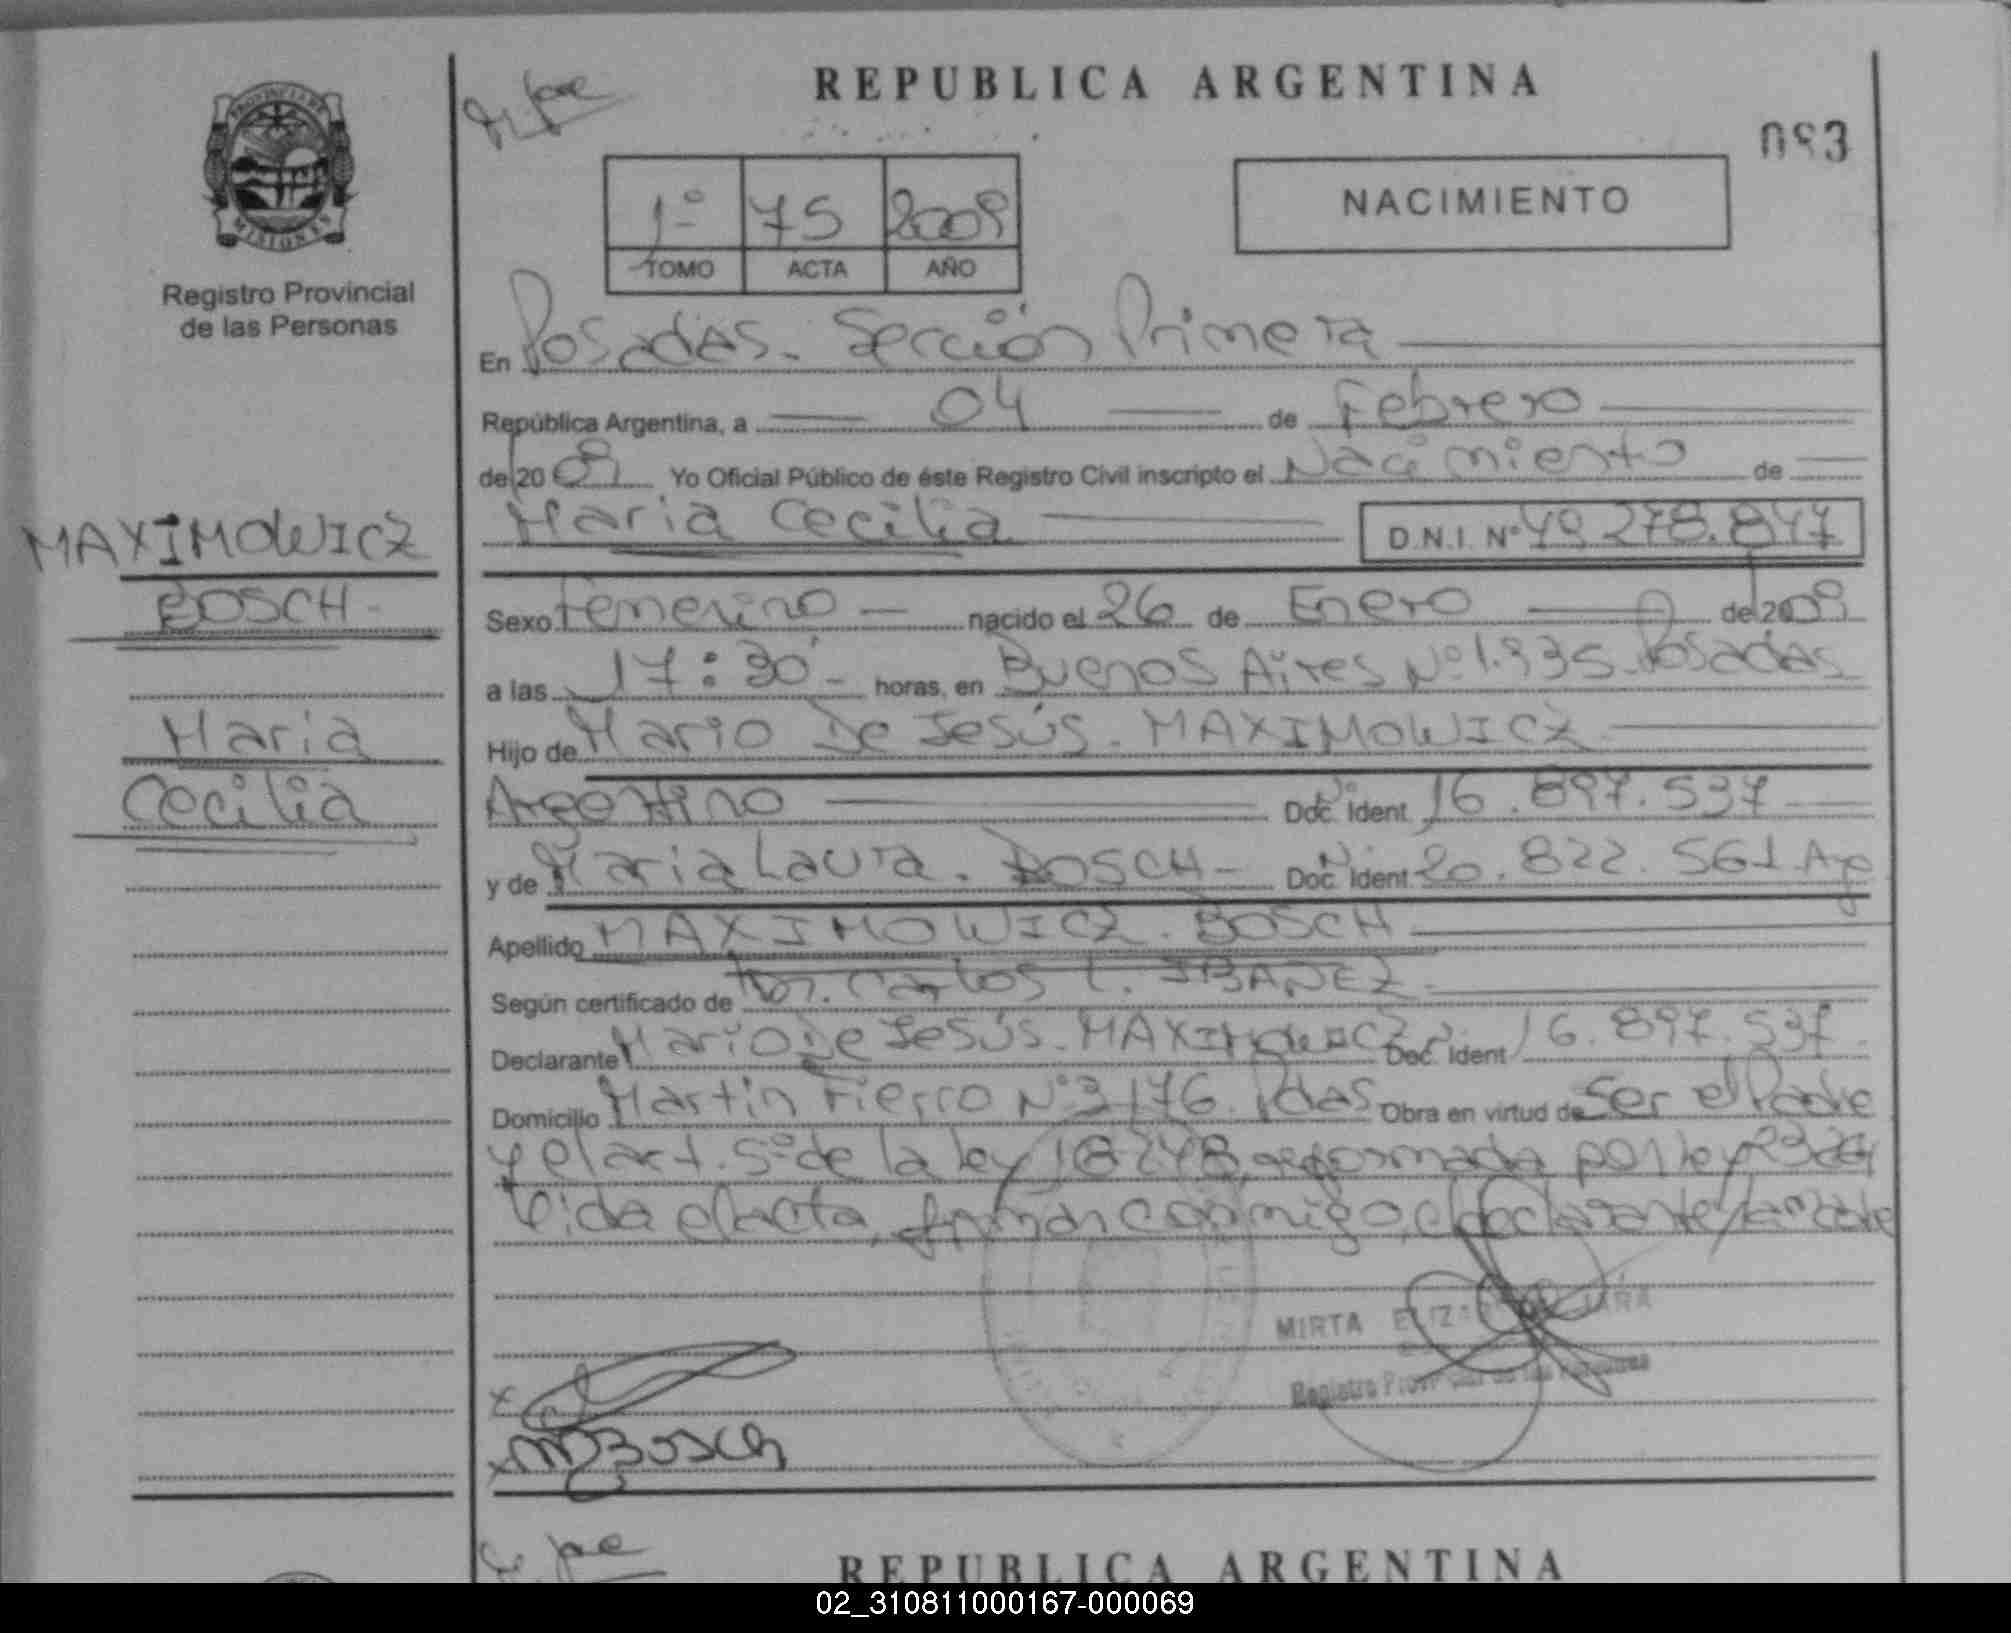 REPUBLICA ARGENTINA
093
1º 75 2009
TOMO ACTA AÑO
NACIMIENTO
PROVINCIA DE
MISIONES
Registro Provincial
de las Personas
En Posadas. Sección Primera
República Argentina, a 04 de Febrero
de 2009 Yo Oficial Público de éste Registro Civil inscripto el Nacimiento de
Maria Cecilia D.N.I. Nº 49.278.847
MAXIMOWICZ
BOSCH
Maria
Cecilia
Sexo Femenino nacido el 26 de Enero de 2009
a las 17:30 horas, en Buenos Aires Nº 1.935 Posadas
Hijo de Mario De Jesús. MAXIMOWICZ
Argentino Doc. Ident. 16.897.537
y de Maria Laura. BOSCH Doc. Ident. 20.822.561 Arg
Apellido MAXIMOWICZ. BOSCH
Según certificado de Dr. Carlos L. IBAÑEZ
Declarante Mario De Jesús. MAXIMOWICZ Doc. Ident 16.897.537.
Domicilio Martin Fierro Nº 3176. Pdas Obra en virtud de Ser el Padre
y el art. 5º de la ley 18248, reformada por ley
Leida el acta, firman conmigo, el declarante
MIRTA
Registro Provincial de las Personas
x
x MBosch
REPUBLICA ARGENTINA
02_310811000167-000069